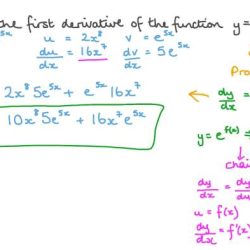 the first derivative of the function y=
u = 2x⁸ v = e⁵ˣ
du/dx = 16x⁷ dv/dx = 5e⁵ˣ
2x⁸5e⁵ˣ + e⁵ˣ16x⁷
dy/dx =
10x⁸5e⁵ˣ + 16x⁷e⁵ˣ
y = e^f(x)
dy/dx = dy/
u = f(x)
du/dx = f'(x)